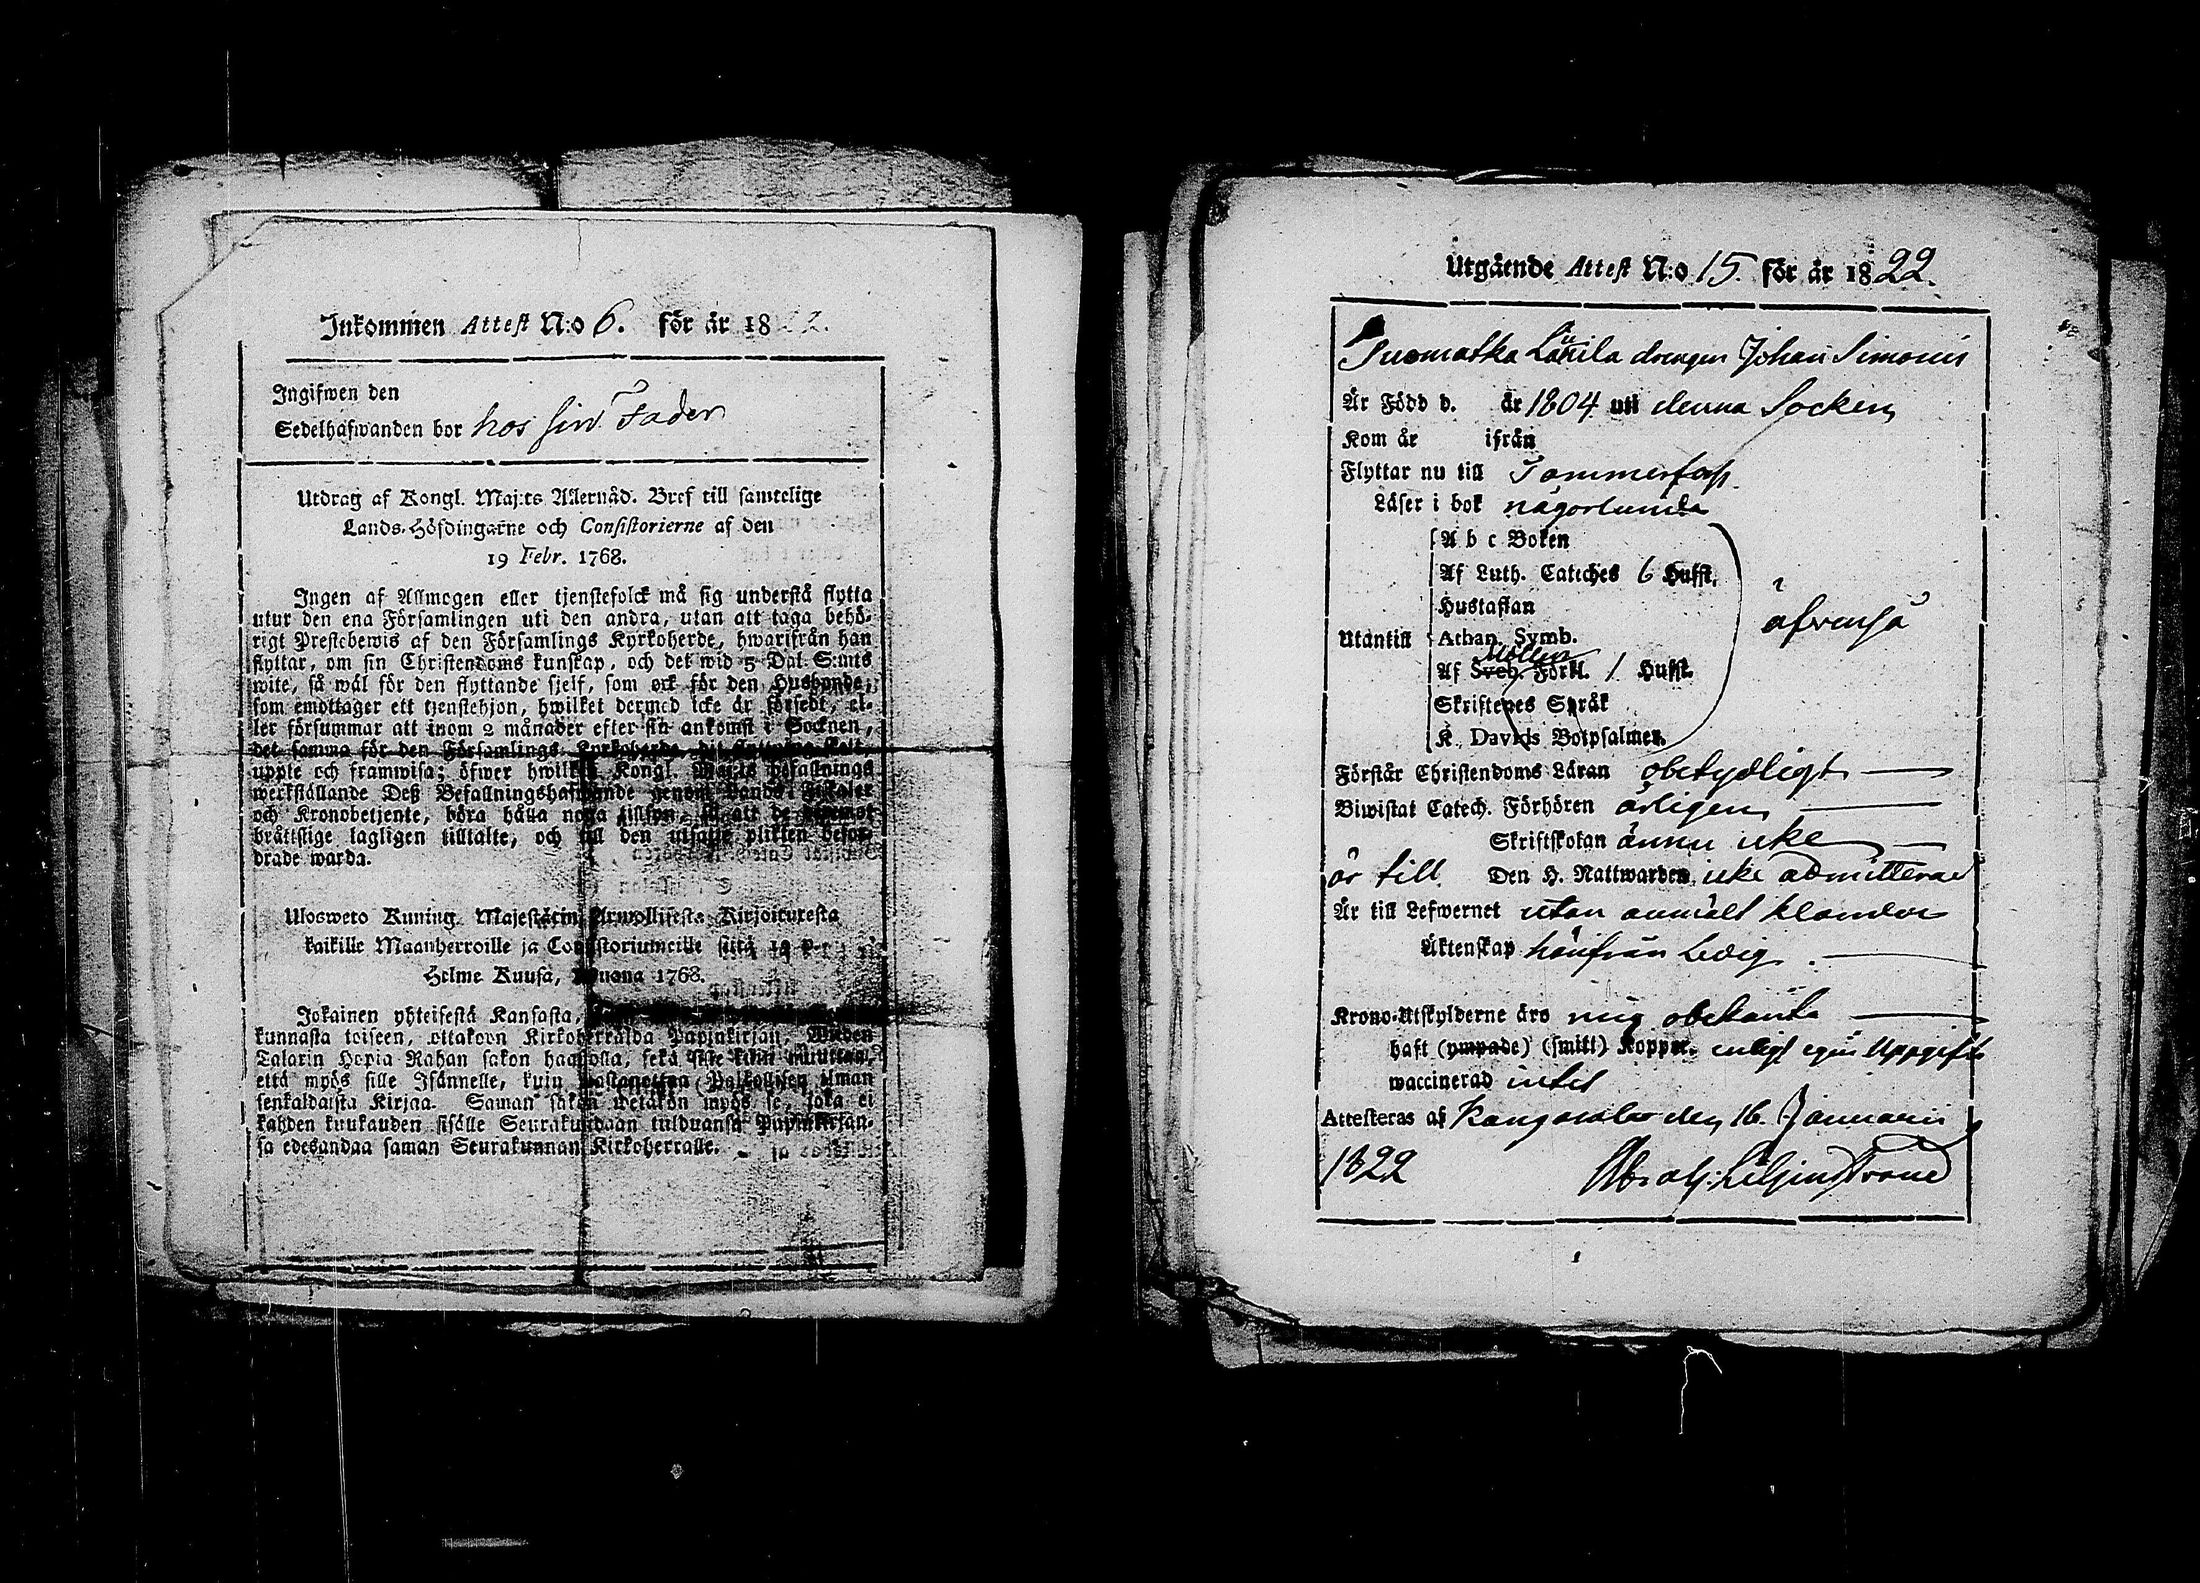 Inkommen Attest N:o 6. för år 1822.
Ingifwen den
Sedelhafwanden bor hos sin Fader
Utdrag af Kongl. Maj:ts Allernåd. Bref till samtelige
Lands-Höfdingarne och Consistorierne af den
19 Febr. 1768.
Ingen af Allmogen eller tjenstefolck må sig understå flytta
utur den ena Församlingen uti den andra, utan att taga behö-
rigt Prestebewis af den Församlings Kyrkoherde, hwarifrån han
flyttar, om sin Christendoms kunskap, och det wid 5 Dal. S:mts
wite, så wäl för den flyttande sjelf, som ock för den Husbonde,
som emottager ett tjenstehjon, hwilket dermed icke är försedt, el-
ler försummar att inom 2 månader efter sin ankomst i Socknen,
det samma för den Församlings Kyrkoherde, dit flyttning skett,
uppte och framwisa; öfwer hwilket Kongl. Maj:ts befallnings
werkställande Deß Befallningshafwande genom Lands-Fiskaler
och Kronobetjente, böra hålla noga tillsyn, så att de
bråttslige lagligen tilltalte, och till den utsatte plikten befor-
drade warda.
Ulosweto Kuning. Majestätin Armollisesta Kirjoituresta
kaikille Maanherroille ja Consistoriumeille siitä 19 p.
Helme Kuusa, Wuona 1768.
Jokainen yhteisestä Kansasta,
kunnasta toiseen, ottakoon Kirkoherralda Papinkirjan, Wijden
Talarin Hopia Rahan sakon haastolla, sekä sille kuin muuttaa,
että myös sille Isännelle, kuin wastanottaa Palkollisen ilman
senkaldaista Kirjaa. Saman sakon wetäkön myös se, joka ei
kahden kuukauden sisälle Seurakundaan tulduansa Papinkirjan-
sa edesandaa saman Seurakunnan Kirkoherralle.
Utgående Attest N:o 15. för år 1822.
Puomatka Laurila drengen Johan Simonis
Är Född d. år 1804 uti denna Socken
Kom år ifrån
Flyttar nu till Tammerfors
Läser i bok någorlunda
A b c Boken
Af Luth. Catches 6 Hufst.
Hustaflan
Utantill Athan. Symb.
Af Sveb. Förkl. 1 Hufst.
Skriftenes Språk
K. Davids Botpsalmer.
äfvenså
Förstår Christendoms Läran obetydligt
Biwistat Catech. Förhören årligen
Skriftskolan ännu icke
är till Den H. Nattwarden icke admitterad
Är till Lefwernet utan anmält klander
Äktenskap härifrån Ledig
Krono-Utskylderne äro mig obekanta
haft (ympade) (smitt) Koppor enligt egen Uppgift
waccinerad intet
Attesteras af Kangasala den 16. Januarii
1822 Abrah: Liljenstrand